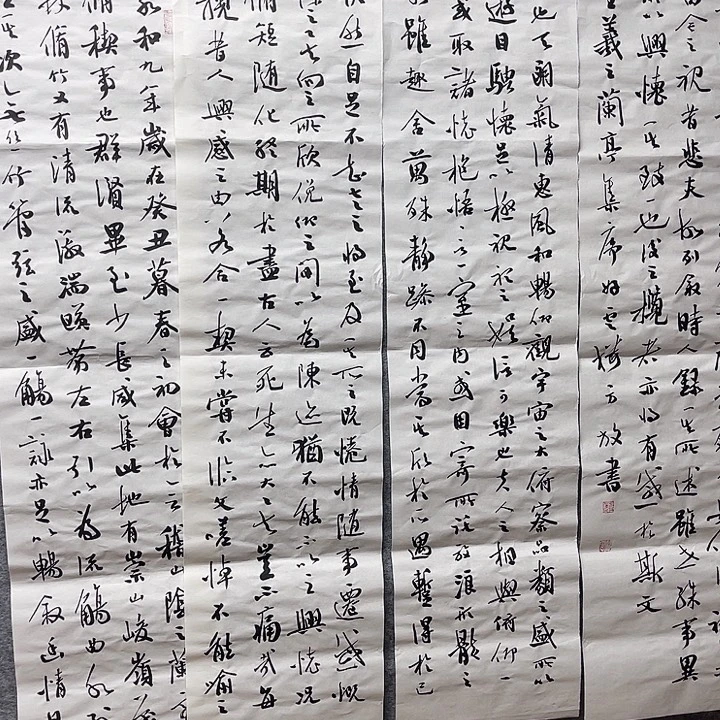 永和九年歲在癸丑暮春之初會於會稽山陰之蘭
脩稧事也群賢畢至少長咸集此地有崇山峻嶺
林脩竹又有清流激湍暎帶左右引以為流觴曲水
次無絲竹管弦之盛一觴一詠亦足以暢敘幽情
也天朗氣清惠風和暢仰觀宇宙之大俯察品類之盛所以
遊目騁懷足以極視聽之娛信可樂也夫人之相與俯仰一
或取諸懷抱悟言一室之內或因寄所託放浪形骸之
雖趣舍萬殊靜躁不同當其欣於所遇蹔得於己
然自足不知老之將至及其所之既惓情隨事遷感慨
之矣向之所欣俛仰之間以為陳迹猶不能不以之興懷況
脩短隨化終期於盡古人云死生亦大矣豈不痛哉每
攬昔人興感之由若合一契未嘗不臨文嗟悼不能喻之
由今之視昔悲夫故列敘時人錄其所述雖世殊事異
所以興懷其致一也後之攬者亦將有感於斯文
王羲之蘭亭集序 方放書